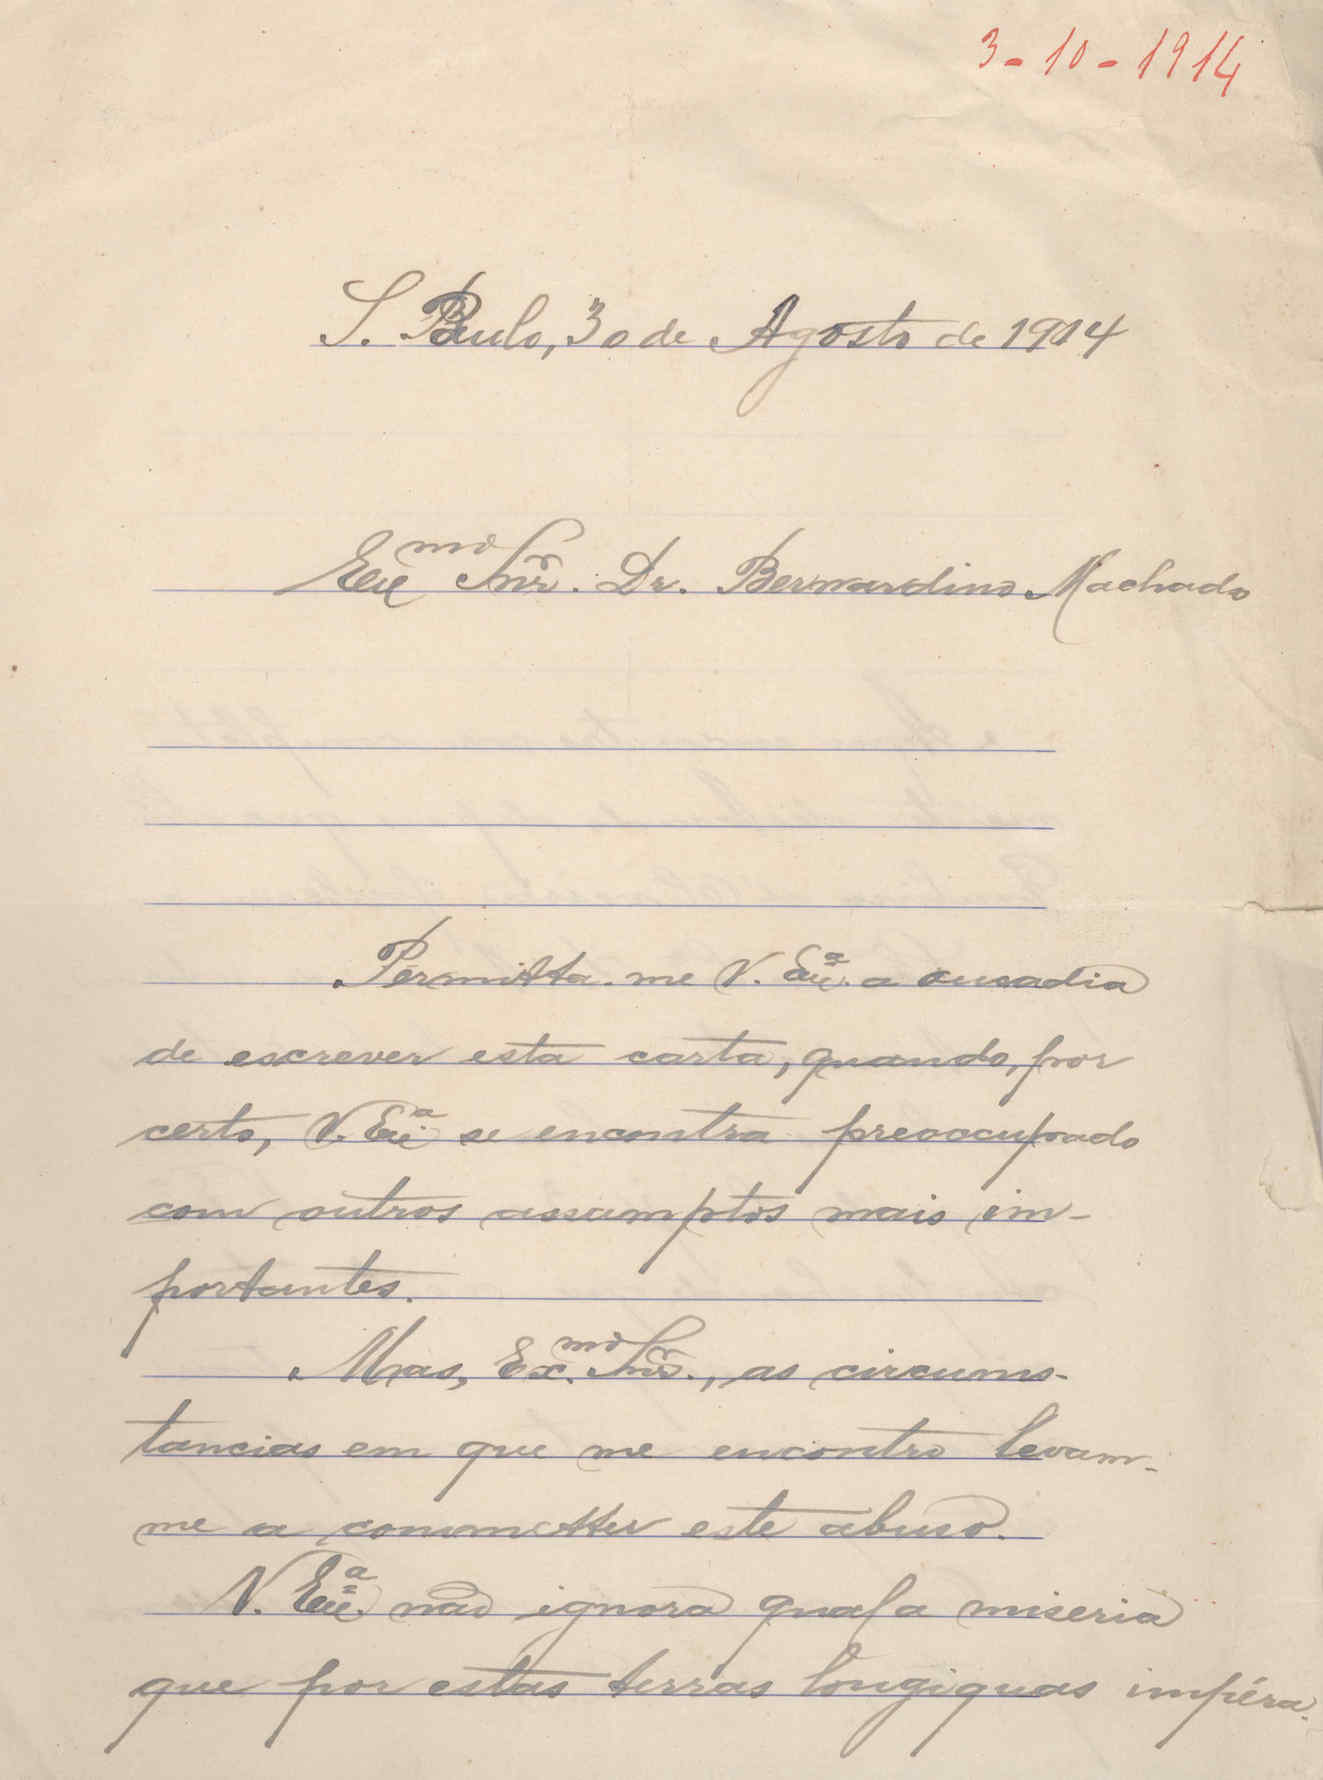 3-10-1914
S. Paulo, 30 de Agosto de 1914
Exmo Snr. Dr. Bernardino Machado
Permitta-me V. Exa. a ousadia
de escrever esta carta, quando, por
certo, V. Exa se encontra preoocupado
com outros assumptos mais im-
portantes.
Mas, Ex.mo Snr., as circums-
tancias em que me encontro levam-
me a commetter este abuso.
V. Exa. não ignora qual a miseria
que por estas terras longiquas impéra.